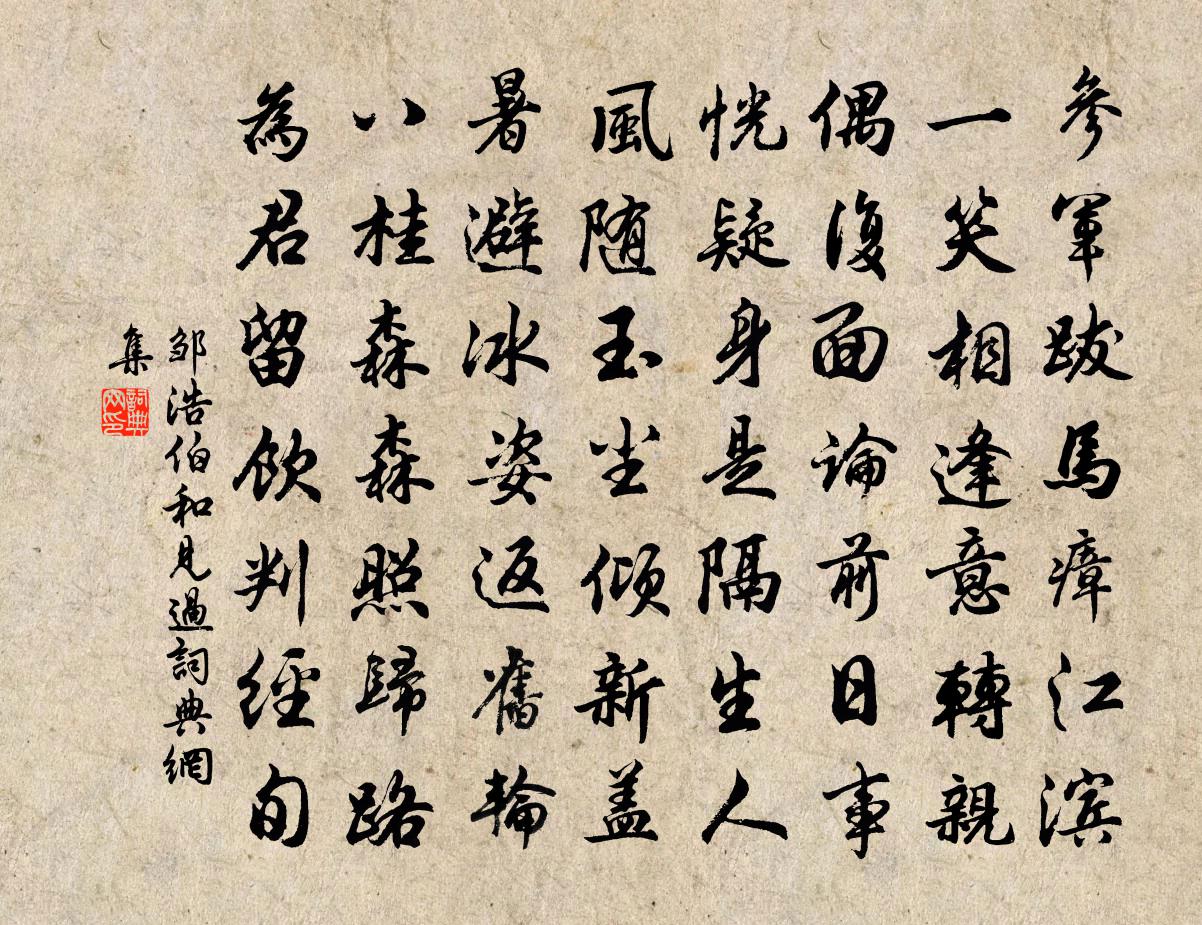 參軍跋馬瘴江濱
一笑相逢意轉親
偶復面論前日事
恍疑身是隔生人
風随玉尘傾新蓋
暑避冰姿返舊輪
八桂森森照歸路
為君留飲判經旬
邹浩伯和見過詞典網
集
詞典
网印